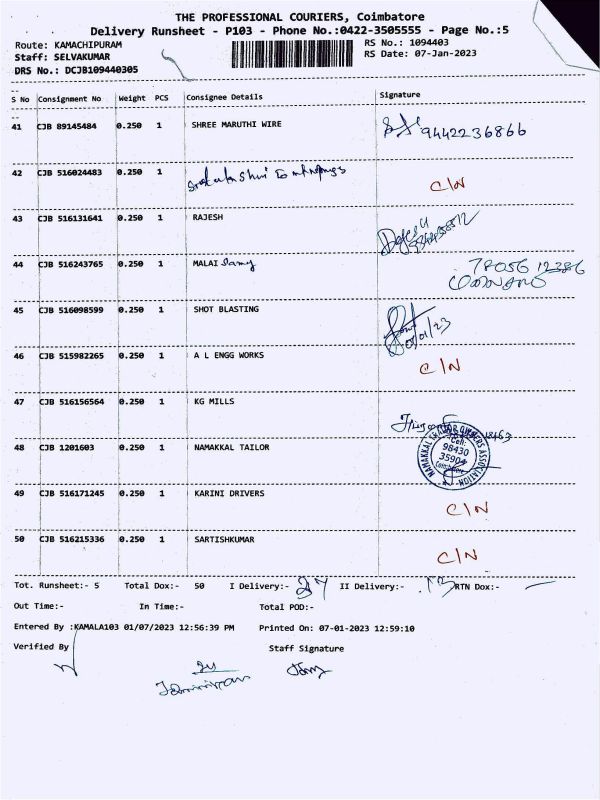 THE PROFESSIONAL COURIERS, Coimbatore
Delivery Runsheet - P103 - Phone No.:0422-3505555 - Page No.:5
Route: KAMACHIPURAM RS No.: 1094403
Staff: SELVAKUMAR RS Date: 07-Jan-2023
DRS No.: DCJB109440305
S No Consignment No Weight PCS Consignee Details Signature
41 CJB 89145484 0.250 1 SHREE MARUTHI WIRE 9442236866
42 CJB 516024483 0.250 1 C/N
43 CJB 516131641 0.250 1 RAJESH
44 CJB 516243765 0.250 1 MALAI Samy 78056 12386
45 CJB 516098599 0.250 1 SHOT BLASTING
46 CJB 515982265 0.250 1 A L ENGG WORKS C/N
47 CJB 516156564 0.250 1 KG MILLS
48 CJB 1201603 0.250 1 NAMAKKAL TAILOR NAMAKKAL OWNERS ASSOCIATION Cell: 98430 35904
49 CJB 516171245 0.250 1 KARINI DRIVERS C/N
50 CJB 516215336 0.250 1 SARTISHKUMAR C/N
Tot. Runsheet:- 5 Total Dox:- 50 I Delivery:- II Delivery:- RTN Dox:-
Out Time:- In Time:- Total POD:-
Entered By :KAMALA103 01/07/2023 12:56:39 PM Printed On: 07-01-2023 12:59:10
Verified By Staff Signature